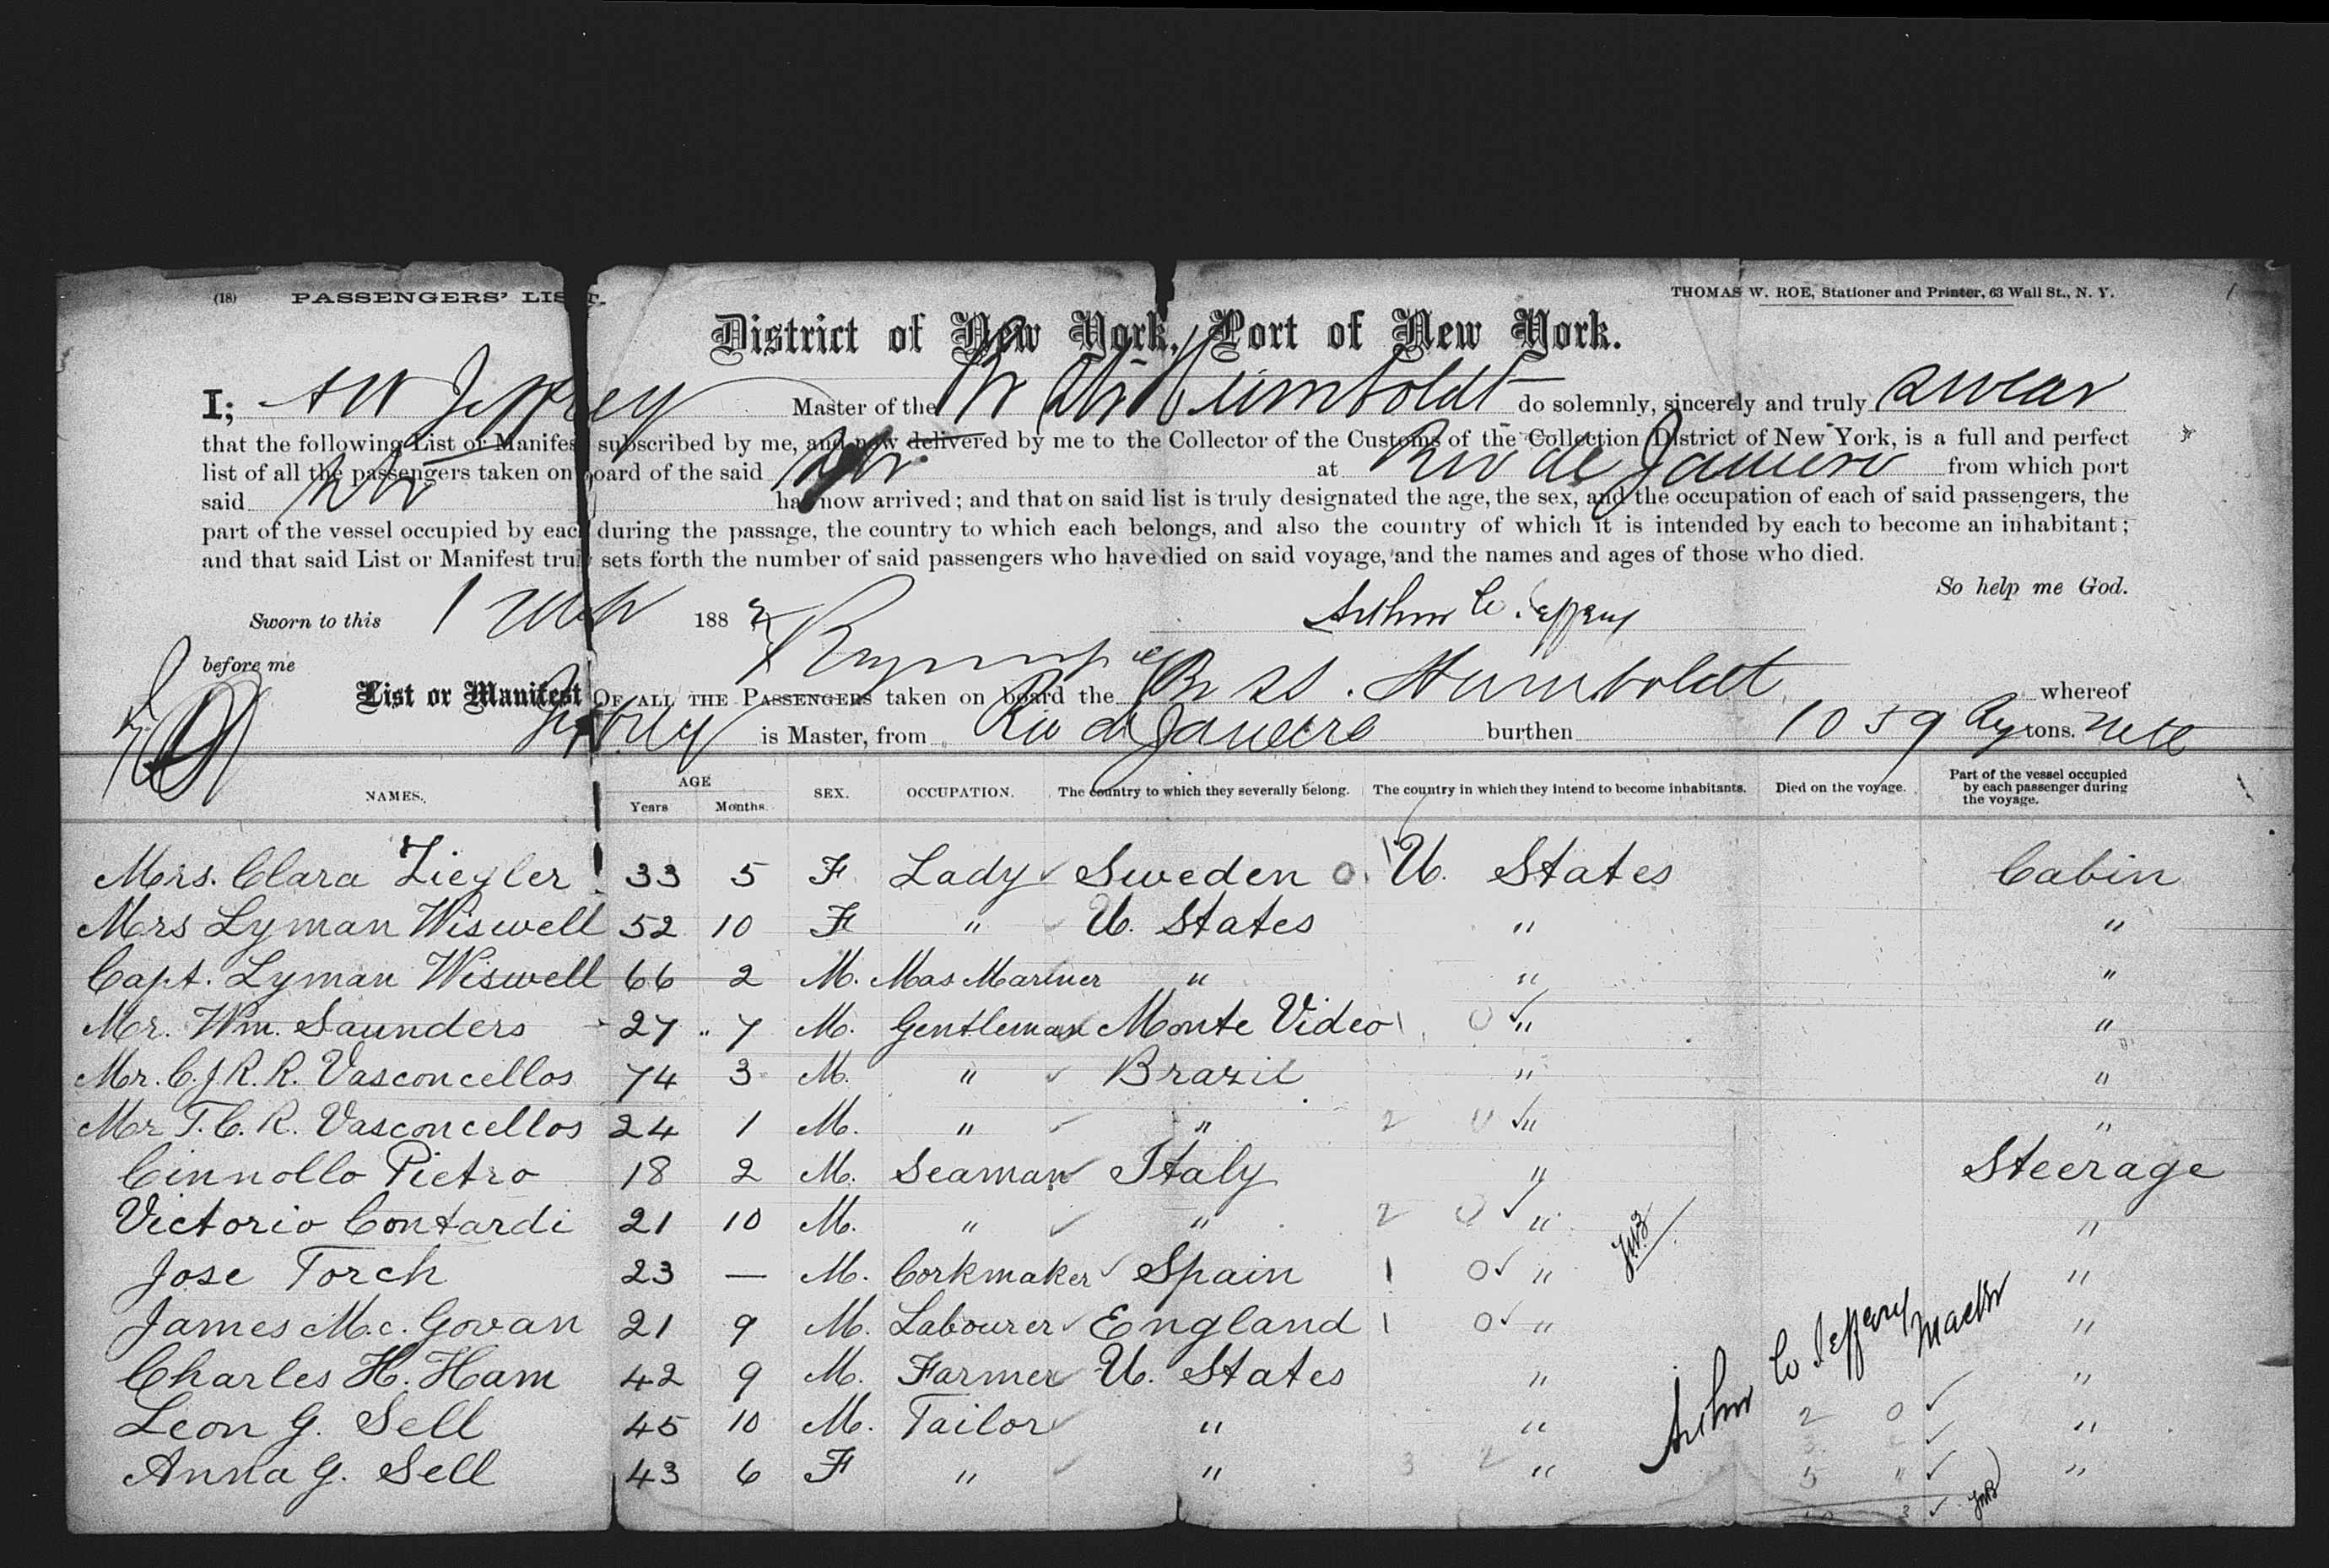 (18) PASSENGERS' LIST. THOMAS W. ROE, Stationer and Printer, 63 Wall St., N. Y.
District of New York, Port of New York.
I; A W Jeffrey Master of the Br Str Humboldt do solemnly, sincerely and truly swear
that the following List or Manifest subscribed by me, and now delivered by me to the Collector of the Customs of the Collection District of New York, is a full and perfect
list of all the passengers taken on board of the said Str at Rio de Janeiro from which port
said Str has now arrived; and that on said list is truly designated the age, the sex, and the occupation of each of said passengers, the
part of the vessel occupied by each during the passage, the country to which each belongs, and also the country of which it is intended by each to become an inhabitant;
and that said List or Manifest truly sets forth the number of said passengers who have died on said voyage, and the names and ages of those who died.
So help me God.
Sworn to this 1 188
before me
List or Manifest OF ALL THE PASSENGERS taken on board the Br SS. Humboldt whereof
Jeffrey is Master, from Rio de Janeiro burthen 1059 tons. nett
NAMES. AGE Years Months. SEX. OCCUPATION. The country to which they severally belong. The country in which they intend to become inhabitants. Died on the voyage. Part of the vessel occupied by each passenger during the voyage.
Mrs. Clara Ziegler 33 5 F Lady Sweden 0 1 U. States Cabin
Mrs Lyman Wiswell 52 10 F " U. States " "
Capt. Lyman Wiswell 66 2 M. Mas Mariner " " "
Mr. Wm. Saunders 27 7 M. Gentleman Monte Video 1 0 " "
Mr. C. J R. R. Vasconcellos 74 3 M. " Brazil " "
Mr T. C. R. Vasconcellos 24 1 M. " " 2 0 " "
Cinnollo Pietro 18 2 M. Seaman Italy " Steerage
Victorio Contardi 21 10 M. " " 2 0 " "
Jose Torch 23 — M. Corkmaker Spain 1 0 " "
James Mc. Govan 21 9 M. Labourer England 1 0 " "
Charles H. Ham 42 9 M. Farmer U. States " "
Leon G. Sell 45 10 M. Tailor " " 2 0 "
Anna G. Sell 43 6 F " " 3 2 " 5 "